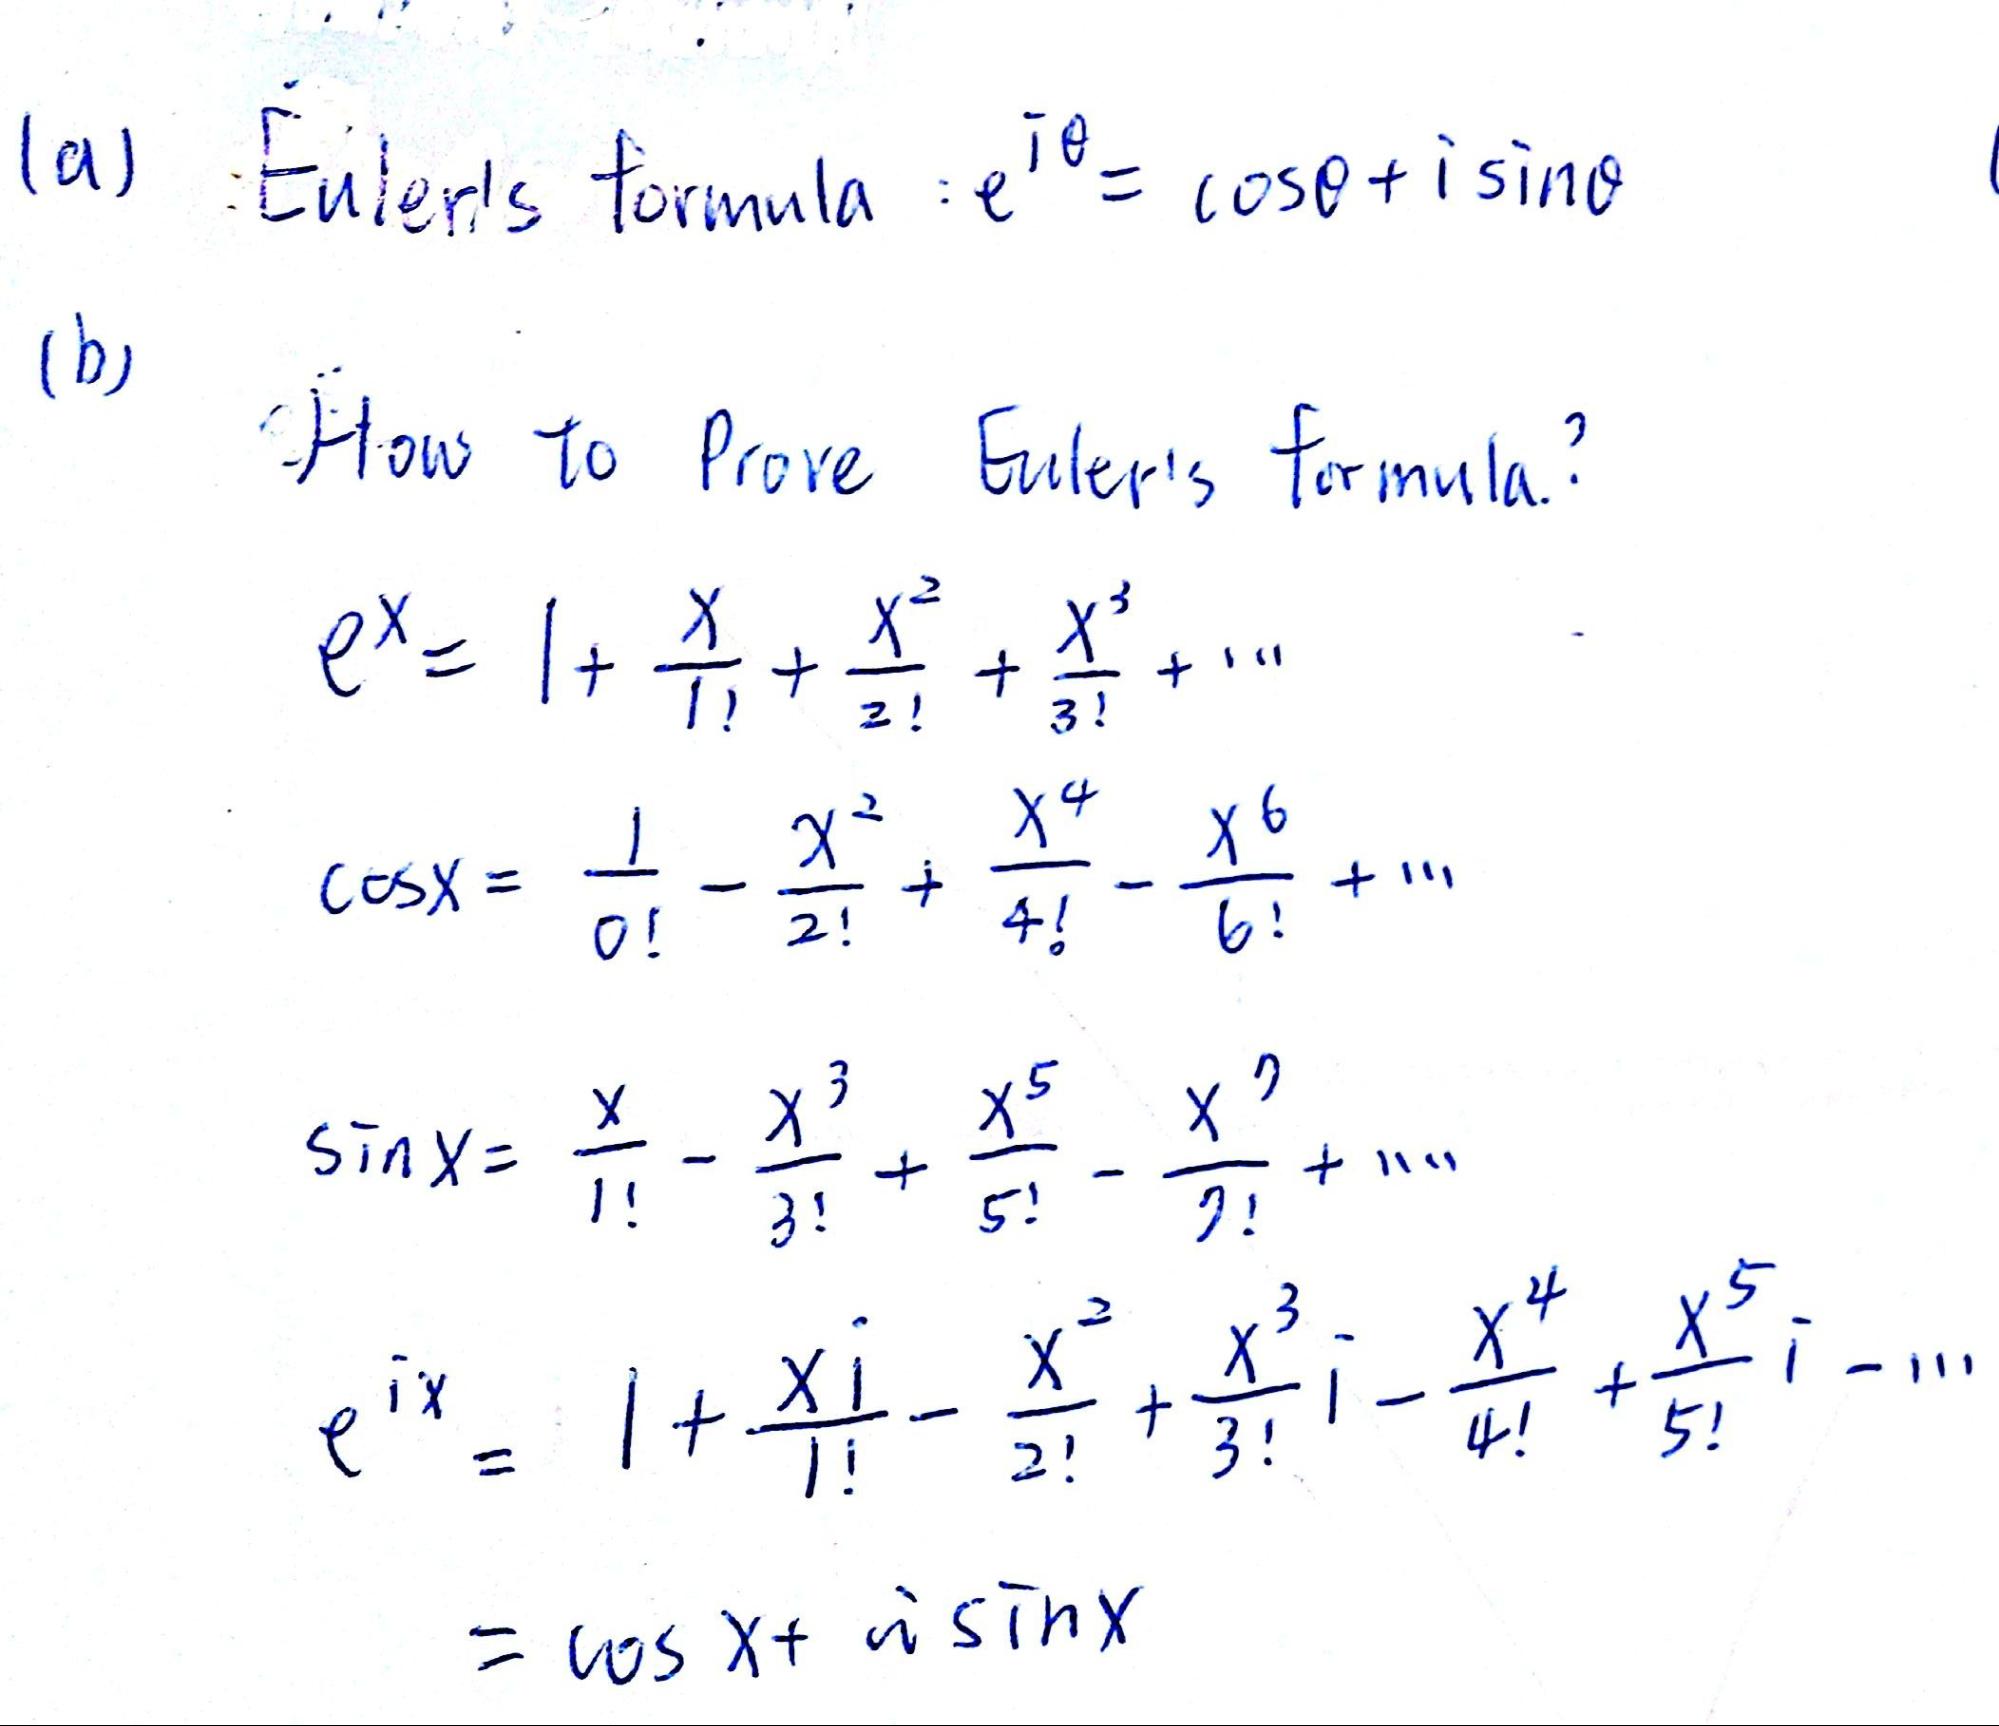 (a) Euler's formula : e^{iθ} = cosθ + i sinθ
(b)
How to Prove Euler's formula.?
e^x = 1 + x/1! + x^2/2! + x^3/3! + ...
cosx = 1/0! - x^2/2! + x^4/4! - x^6/6! + ...
sinx = x/1! - x^3/3! + x^5/5! - x^7/7! + ....
e^{ix} = 1 + xi/1! - x^2/2! + x^3/3! i - x^4/4! + x^5/5! i - ...
= cos x + i sinx